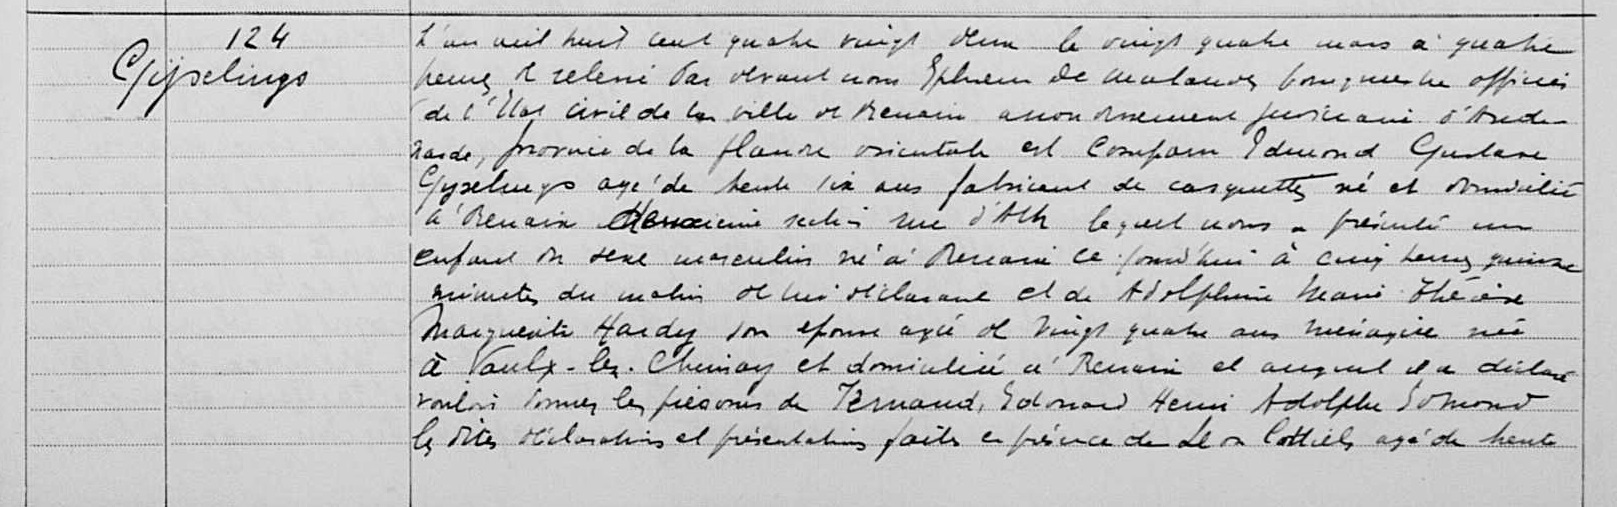 124
Gijselings
L'an mil huit cent quatre vingt deux le vingt quatre mars à quatre
heures de relevé Par devant nous Ephrem De Malander bourgmestre officier
de l'Etat civil de la ville de Renaix arrondissement judiciaire d'Aude-
narde, province de la flandre orientale est comparu Edmond Gustave
Gyselings agé de trente six ans fabricant de casquettes né et domicilié
à Renaix deuxieme section rue d'Ath lequel nous a présenté un
enfant du sexe masculin né à Renaix ce jourd'hui à cinq heures quinze
minutes du matin de lui déclarant et de Adolphine Marie Thérèse
Marguerite Hardy son epouse agée de vingt quatre ans ménagère née
à Vaulx-lez-Chimay et domiciliée à Renaix et auquel il a déclaré
vouloir donner les prénoms de Fernand, Edouard Henri Adolphe Edmond
les dites déclaration et présentation faites en présence de Léon agé de trente